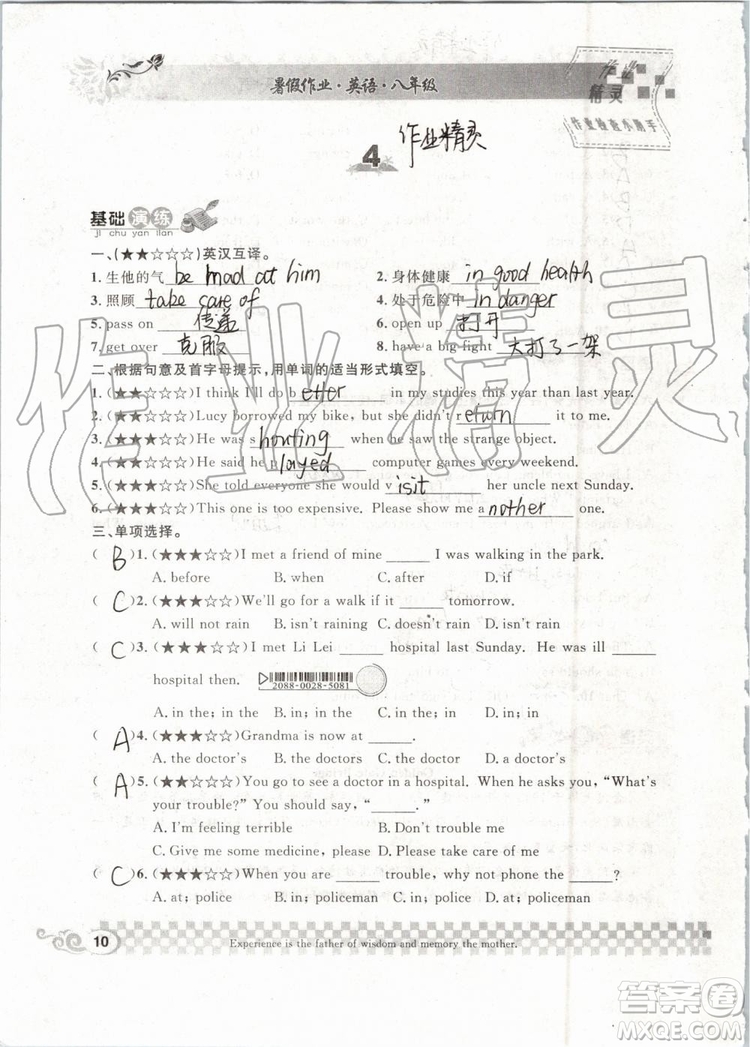 暑假作业·英语·八年级
作业精灵
作业检查小助手
4 作业精灵
基础演练
ji chu yan lian
一、(★★☆☆☆)英汉互译。
1. 生他的气 be mad at him 2. 身体健康 in good health
3. 照顾 take care of 4. 处于危险中 in danger
5. pass on 传递 6. open up 打开
7. get over 克服 8. have a big fight 大打了一架
二、根据句意及首字母提示，用单词的适当形式填空。
1. (★★☆☆☆)I think I'll do b etter in my studies this year than last year.
2. (★★☆☆☆)Lucy borrowed my bike, but she didn't r eturn it to me.
3. (★★★☆☆)He was s houting when he saw the strange object.
4. (★★★☆☆)He said he p layed computer games every weekend.
5. (★★★☆☆)She told everyone she would v isit her uncle next Sunday.
6. (★★★☆☆)This one is too expensive. Please show me a nother one.
三、单项选择。
( B )1. (★★★☆☆)I met a friend of mine ______ I was walking in the park.
A. before B. when C. after D. if
( C )2. (★★★☆☆)We'll go for a walk if it ______ tomorrow.
A. will not rain B. isn't raining C. doesn't rain D. isn't rain
( C )3. (★★★☆☆)I met Li Lei ______ hospital last Sunday. He was ill ______
hospital then. 2088-0028-5081
A. in the; in the B. in; in the C. in the; in D. in; in
( A )4. (★★★☆☆)Grandma is now at ______.
A. the doctor's B. doctors C. the doctor D. a doctor
( A )5. (★★★☆☆)You go to see a doctor in a hospital. When he asks you, "What's
your trouble?" You should say, "______."
A. I'm feeling terrible B. Don't trouble me
C. Give me some medicine, please D. Please take care of me
( C )6. (★★★☆☆)When you are ______ trouble, why not phone the ______?
A. at; police B. at; policeman C. in; police D. in; policeman
10 Experience is the father of wisdom and memory the mother.
作业精灵
答案圈
MXQE.COM